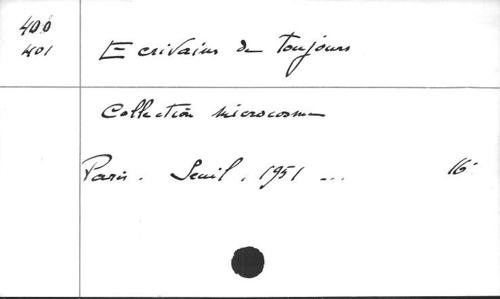 400
401
Ecrivains de Toujours
Collection microcosme
Paris. Seuil, 1951 ...
16°